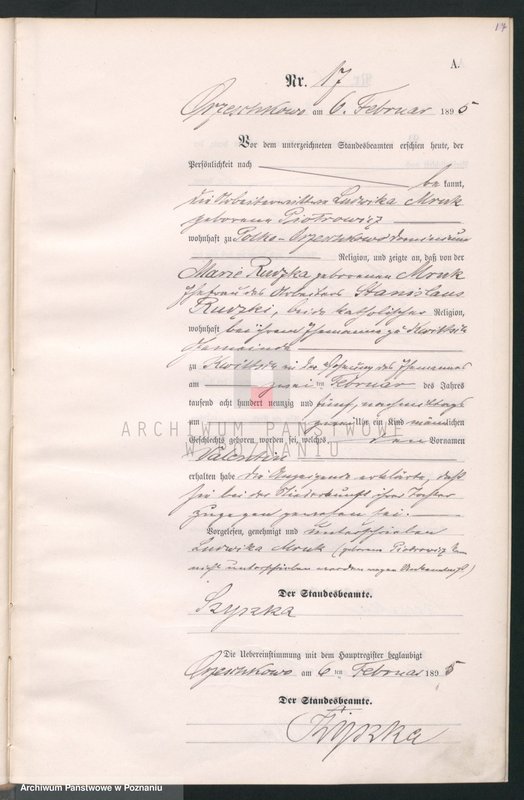 17
A.
Nr. 17
Orzeschkowo am 6. Februar 1895
Vor dem unterzeichneten Standesbeamten erschien heute, der
Persönlichkeit nach
be kannt,
die Arbeiterwittwe Ludwika Mruk
geborene Piotrowicz
wohnhaft zu Polko-Orzeschkowo Dominium
Religion, und zeigte an, daß von der
Marie Rudzka geborenen Mruk
Ehefrau des Arbeiters Stanislaus
Rudzki, beide katholischer Religion,
wohnhaft bei ihrem Ehemanne zu Kwiltsch
Gemeinde
zu Kwiltsch in der Wohnung des Ehemannes
am zwei ten Februar des Jahres
tausend acht hundert neunzig und fünf nachmittags
um Uhr ein Kind männlichen
Geschlechts geboren worden sei, welches den Vornamen
Valentin
erhalten habe die Anzeigende erklärte, daß
sie bei der Niederkunft ihrer Tochter
zugegen gewesen sei.
Vorgelesen, genehmigt und unterschrieben
Ludwika Mruk (geborene Piotrowicz
nicht unterschrieben worden wegen
Der Standesbeamte.
Szyszka
Die Uebereinstimmung mit dem Hauptregister beglaubigt
Orzeschkowo am 6 ten Februar 1895
Der Standesbeamte.
ARCHIWUM PAŃSTWOWE
W POZNANIU
Archiwum Państwowe w Poznaniu